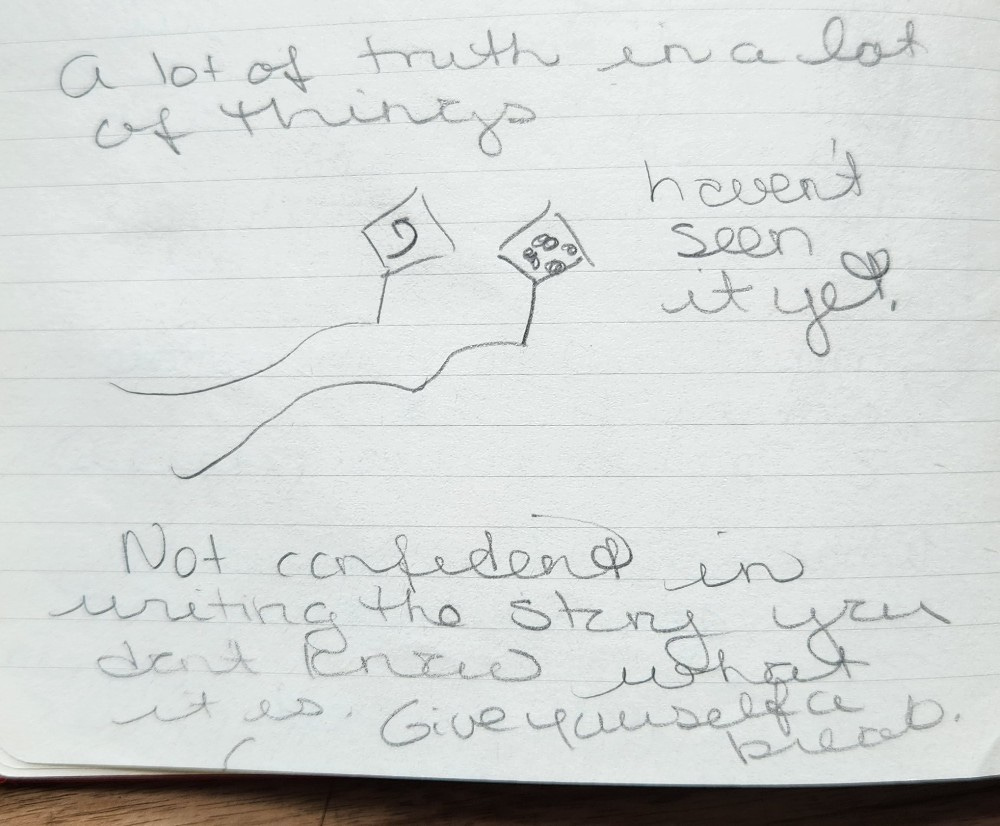 A lot of truth in a lot
of things
haven't
seen
it yet.
Not confident in
writing the story you
don't know what
it is. Give yourself a
break.